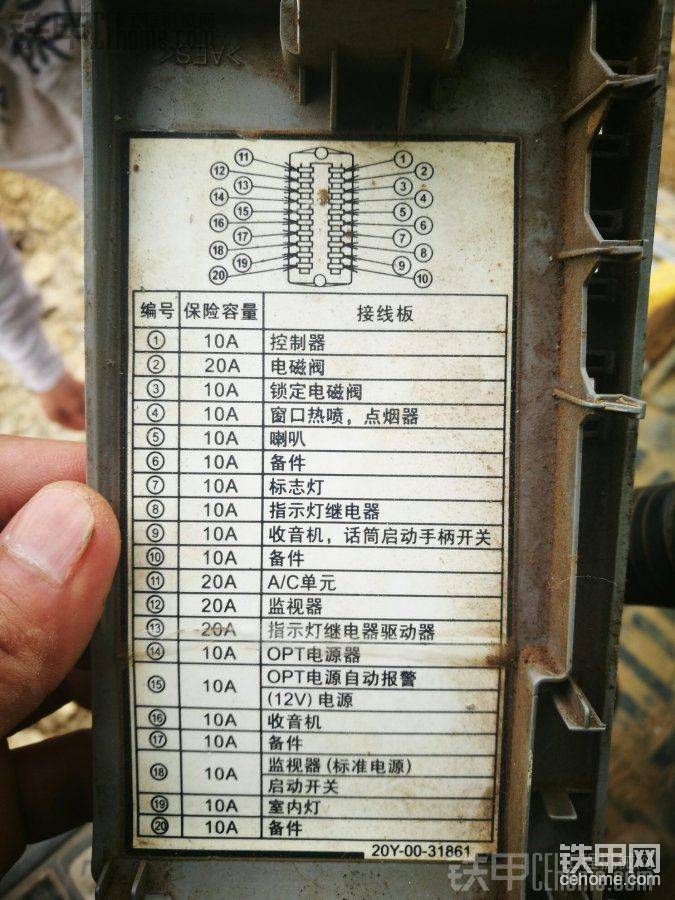 >AES<
⑪ ①
⑫ ②
⑬ ③
⑭ ④
⑮ ⑤
⑯ ⑥
⑰ ⑦
⑱ ⑧
⑲ ⑨
⑳ ⑩
编号 保险容量 接线板
① 10A 控制器
② 20A 电磁阀
③ 10A 锁定电磁阀
④ 10A 窗口热喷，点烟器
⑤ 10A 喇叭
⑥ 10A 备件
⑦ 10A 标志灯
⑧ 10A 指示灯继电器
⑨ 10A 收音机，话筒启动手柄开关
⑩ 10A 备件
⑪ 20A A/C单元
⑫ 20A 监视器
⑬ 20A 指示灯继电器驱动器
⑭ 10A OPT电源器
⑮ 10A OPT电源自动报警
(12V) 电源
⑯ 10A 收音机
⑰ 10A 备件
⑱ 10A 监视器 (标准电源)
启动开关
⑲ 10A 室内灯
⑳ 10A 备件
20Y-00-31861
铁甲网
cehome.com